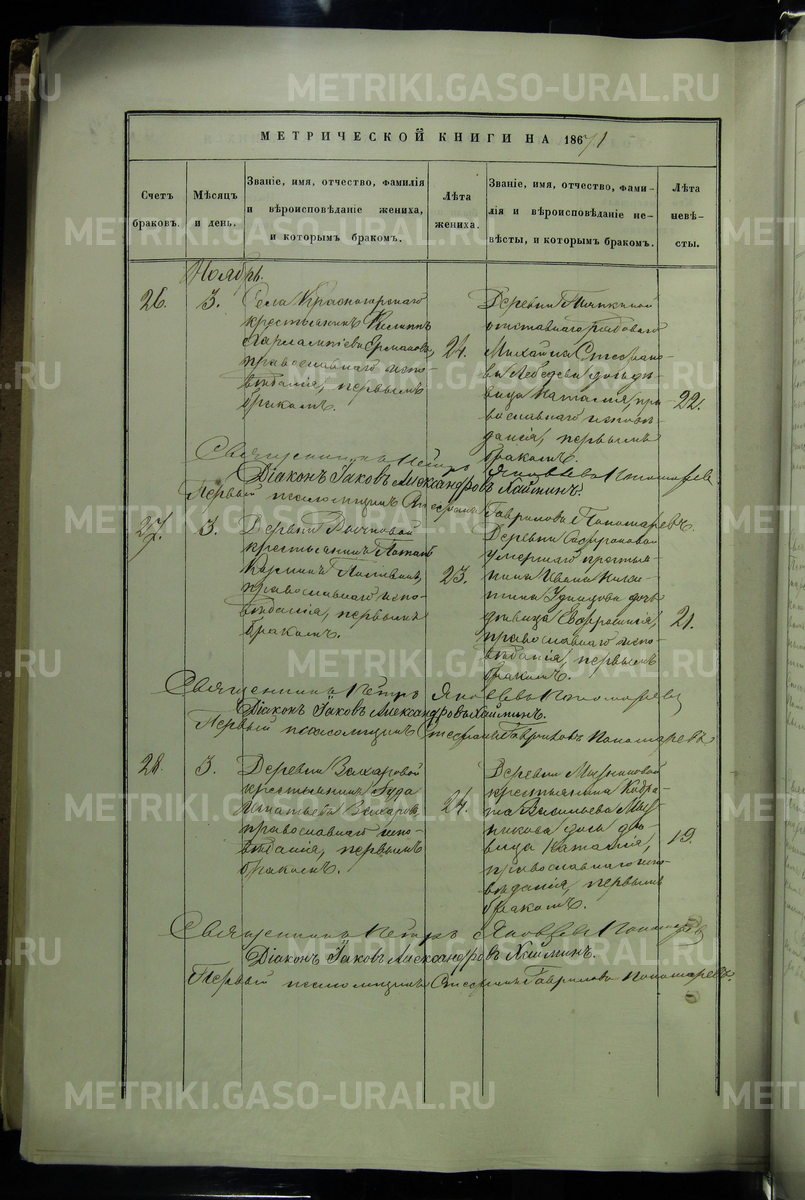 МЕТРИЧЕСКОЙ КНИГИ НА 1871
Счетъ браковъ.
Мѣсяцъ и день.
Званіе, имя, отчество, фамилія
и вѣроисповѣданіе жениха,
и которымъ бракомъ.
Лѣта жениха.
Званіе, имя, отчество, фами-
лія и вѣроисповѣданіе не-
вѣсты, и которымъ бракомъ.
Лѣта невѣ-
сты.
Ноябрь.
26.
3.
Села Красногорскаго
крестьянинъ Филиппъ
православнаго испо-
вѣданія, первымъ
бракомъ.
24.
Деревни
отставнаго рядоваго
Михаила Стефано-
ва Лебедева дочь дѣ-
вица Наталія, пра-
вославнаго исповѣ-
данія, первымъ
бракомъ.
22.
Священникъ Петръ Яковлевъ Пономаревъ
Діаконъ Іаковъ Александровъ Хаймин.
Первый псаломщикъ Стефанъ Гавриловъ Пономаревъ
27.
3.
Деревни
крестьянинъ
православнаго испо-
вѣданія, первымъ
бракомъ.
23.
Деревни
умершаго крестья-
нина Ивана
дочь
дѣвица Евфросинія,
православнаго испо-
вѣданія, первымъ
бракомъ.
21.
Священникъ Петръ Яковлевъ Пономаревъ
Діаконъ Іаковъ Александровъ Хайминъ.
Первый псаломщикъ Стефанъ Гавриловъ Пономаревъ
28.
3.
Деревни Захаровой
крестьянинъ Іуда
Игнатьевъ Захаровъ,
православнаго испо-
вѣданія, первымъ
бракомъ.
24.
Деревни Мыльниковой
крестьянина Кодра-
та Васильева Мыль-
никова дочь дѣ-
вица Наталія,
православнаго испо-
вѣданія, первымъ
бракомъ.
19.
Священникъ Петръ Яковлевъ Пономаревъ
Діаконъ Іаковъ Александровъ Хайминъ.
Первый псаломщикъ Стефанъ Гавриловъ Пономаревъ.
METRIKI.GASO-URAL.RU